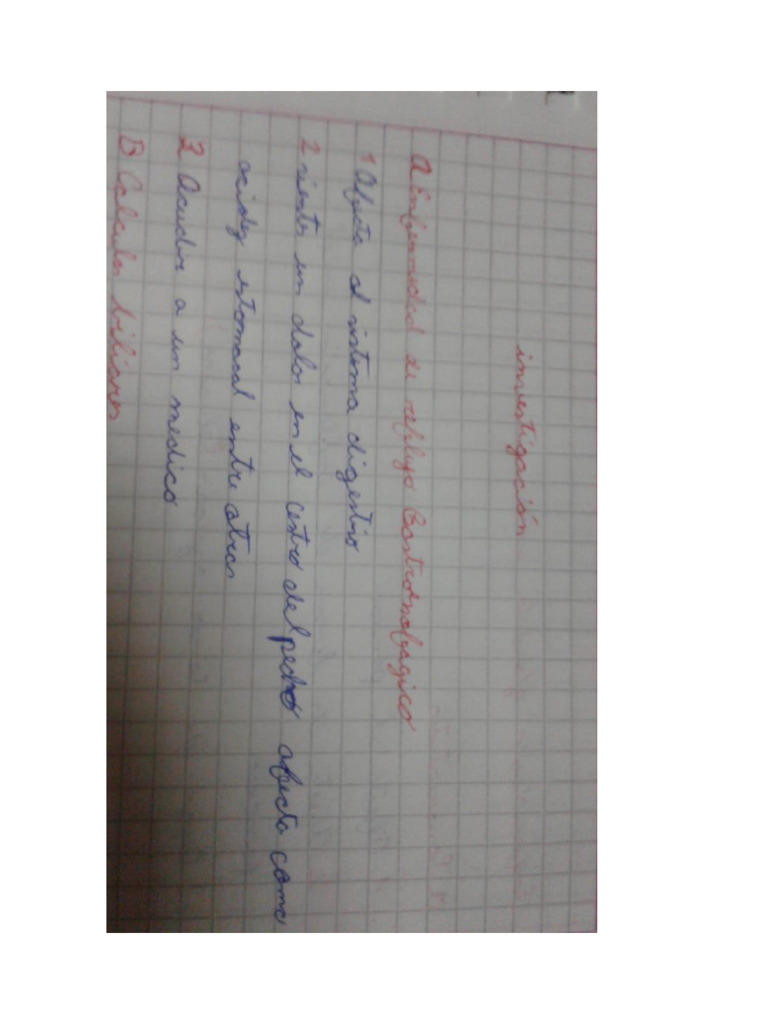 investigación
A Enfermedad de reflujo Gastroesofagico
1 Afecta el sistema digestivo
2 siente un dolor en el centro del pecho afecta como
acidez estomacal entre otras
3 Acudir a un medico
B Calculos biliares